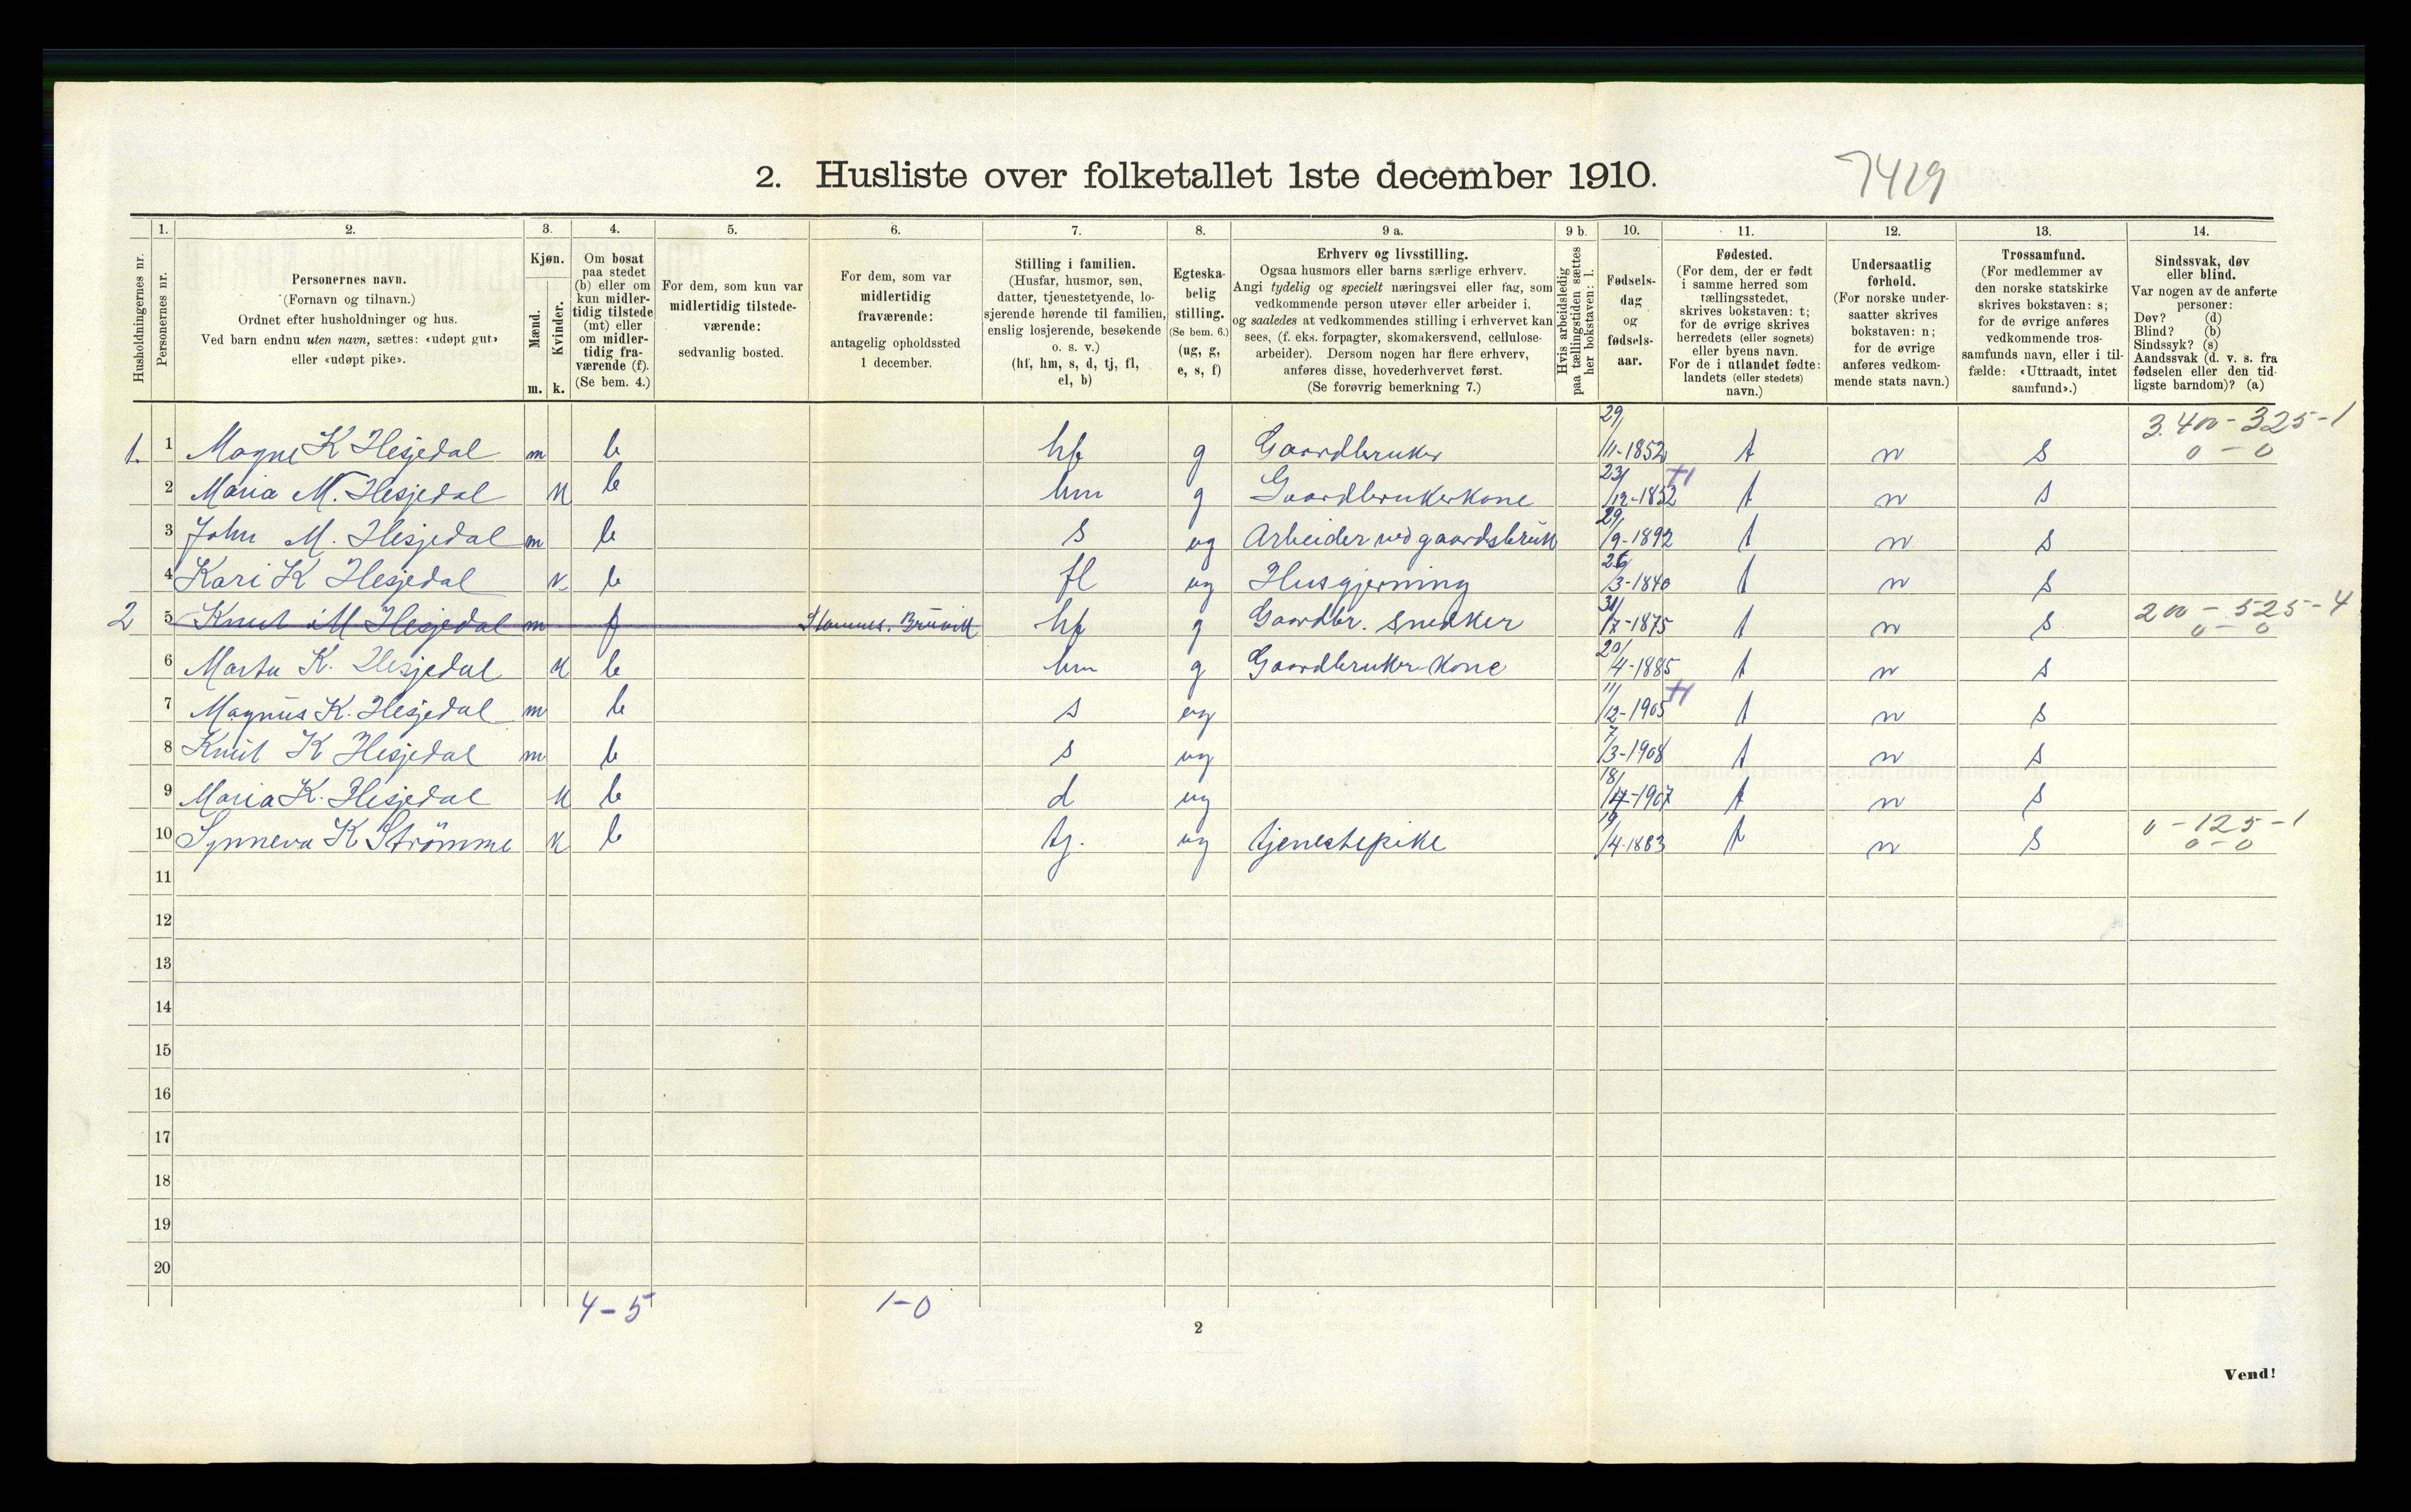 2. Husliste over folketallet 1ste december 1910.
7419
1. 2. 3. 4. 5. 6. 7. 8. 9 a. 9 b. 10. 11. 12. 13. 14.
Husholdningernes nr.
Personernes nr.
Personernes navn.
(Fornavn og tilnavn.)
Ordnet efter husholdninger og hus.
Ved barn endnu uten navn, sættes: «udøpt gut»
eller «udøpt pike».
Kjøn.
Mænd.
Kvinder.
m. k.
Om bosat
paa stedet
(b) eller om
kun midler-
tidig tilstede
(mt) eller
om midler-
tidig fra-
værende (f).
(Se bem. 4.)
For dem, som kun var
midlertidig tilstede-
værende:
sedvanlig bosted.
For dem, som var
midlertidig
fraværende:
antagelig opholdssted
1 december.
Stilling i familien.
(Husfar, husmor, søn,
datter, tjenestetyende, lo-
sjerende hørende til familien,
enslig losjerende, besøkende
o. s. v.)
(hf, hm, s, d, tj, fl,
el, b)
Egteska-
belig
stilling.
(Se bem. 6.)
(ug, g,
e, s, f)
Erhverv og livsstilling.
Ogsaa husmors eller barns særlige erhverv.
Angi tydelig og specielt næringsvei eller fag, som
vedkommende person utøver eller arbeider i,
og saaledes at vedkommendes stilling i erhvervet kan
sees, (f. eks. forpagter, skomakersvend, cellulose-
arbeider). Dersom nogen har flere erhverv,
anføres disse, hovederhvervet først.
(Se forøvrig bemerkning 7.)
Hvis arbeidsledig
paa tællingstiden sættes
her bokstaven: l.
Fødsels-
dag
og
fødsels-
aar.
Fødested.
(For dem, der er født
i samme herred som
tællingsstedet,
skrives bokstaven: t;
for de øvrige skrives
herredets (eller sognets)
eller byens navn.
For de i utlandet fødte:
landets (eller stedets)
navn.)
Undersaatlig
forhold.
(For norske under-
saatter skrives
bokstaven: n;
for de øvrige
anføres vedkom-
mende stats navn.)
Trossamfund.
(For medlemmer av
den norske statskirke
skrives bokstaven: s;
for de øvrige anføres
vedkommende tros-
samfunds navn, eller i til-
fælde: «Uttraadt, intet
samfund».)
Sindssvak, døv
eller blind.
Var nogen av de anførte
personer:
Døv? (d)
Blind? (b)
Sindssyk? (s)
Aandssvak (d. v. s. fra
fødselen eller den tid-
ligste barndom)? (a)
1. 1 Magne K Hesjedal m b hf g Gaardbruker 29/11-1852 t n s 3.400-325-1 0-0
2 Maria M. Hesjedal k b hm g Gaardbrukerkone 23/12-1852 t n s
3 John M. Hesjedal m b s ug Arbeider ved gaardsbruk 29/9-1892 t n s
4 Kari K Hesjedal k b fl ug Husgjerning 26/3-1840 t n s
2 5 Knut M Hesjedal m f Stamnes. Bruvik hf g Gaardbr. Snedker 31/7-1875 t n s 200-525-4 0-0
6 Marta K. Hesjedal k b hm g Gaardbruker kone 20/4-1885 t n s
7 Magnus K. Hesjedal m b s ug 11/12-1905 t n s
8 Knut K Hesjedal m b s ug 7/3-1908 t n s
9 Maria K. Hesjedal k b d ug 18/-1907 t n s
10 Synneva K Strömme k b tj. ug tjenestepike 19/4-1883 t n s 0-125-1 0-0
11
12
13
14
15
16
17
18
19
20
4-5 1-0
2
Vend!